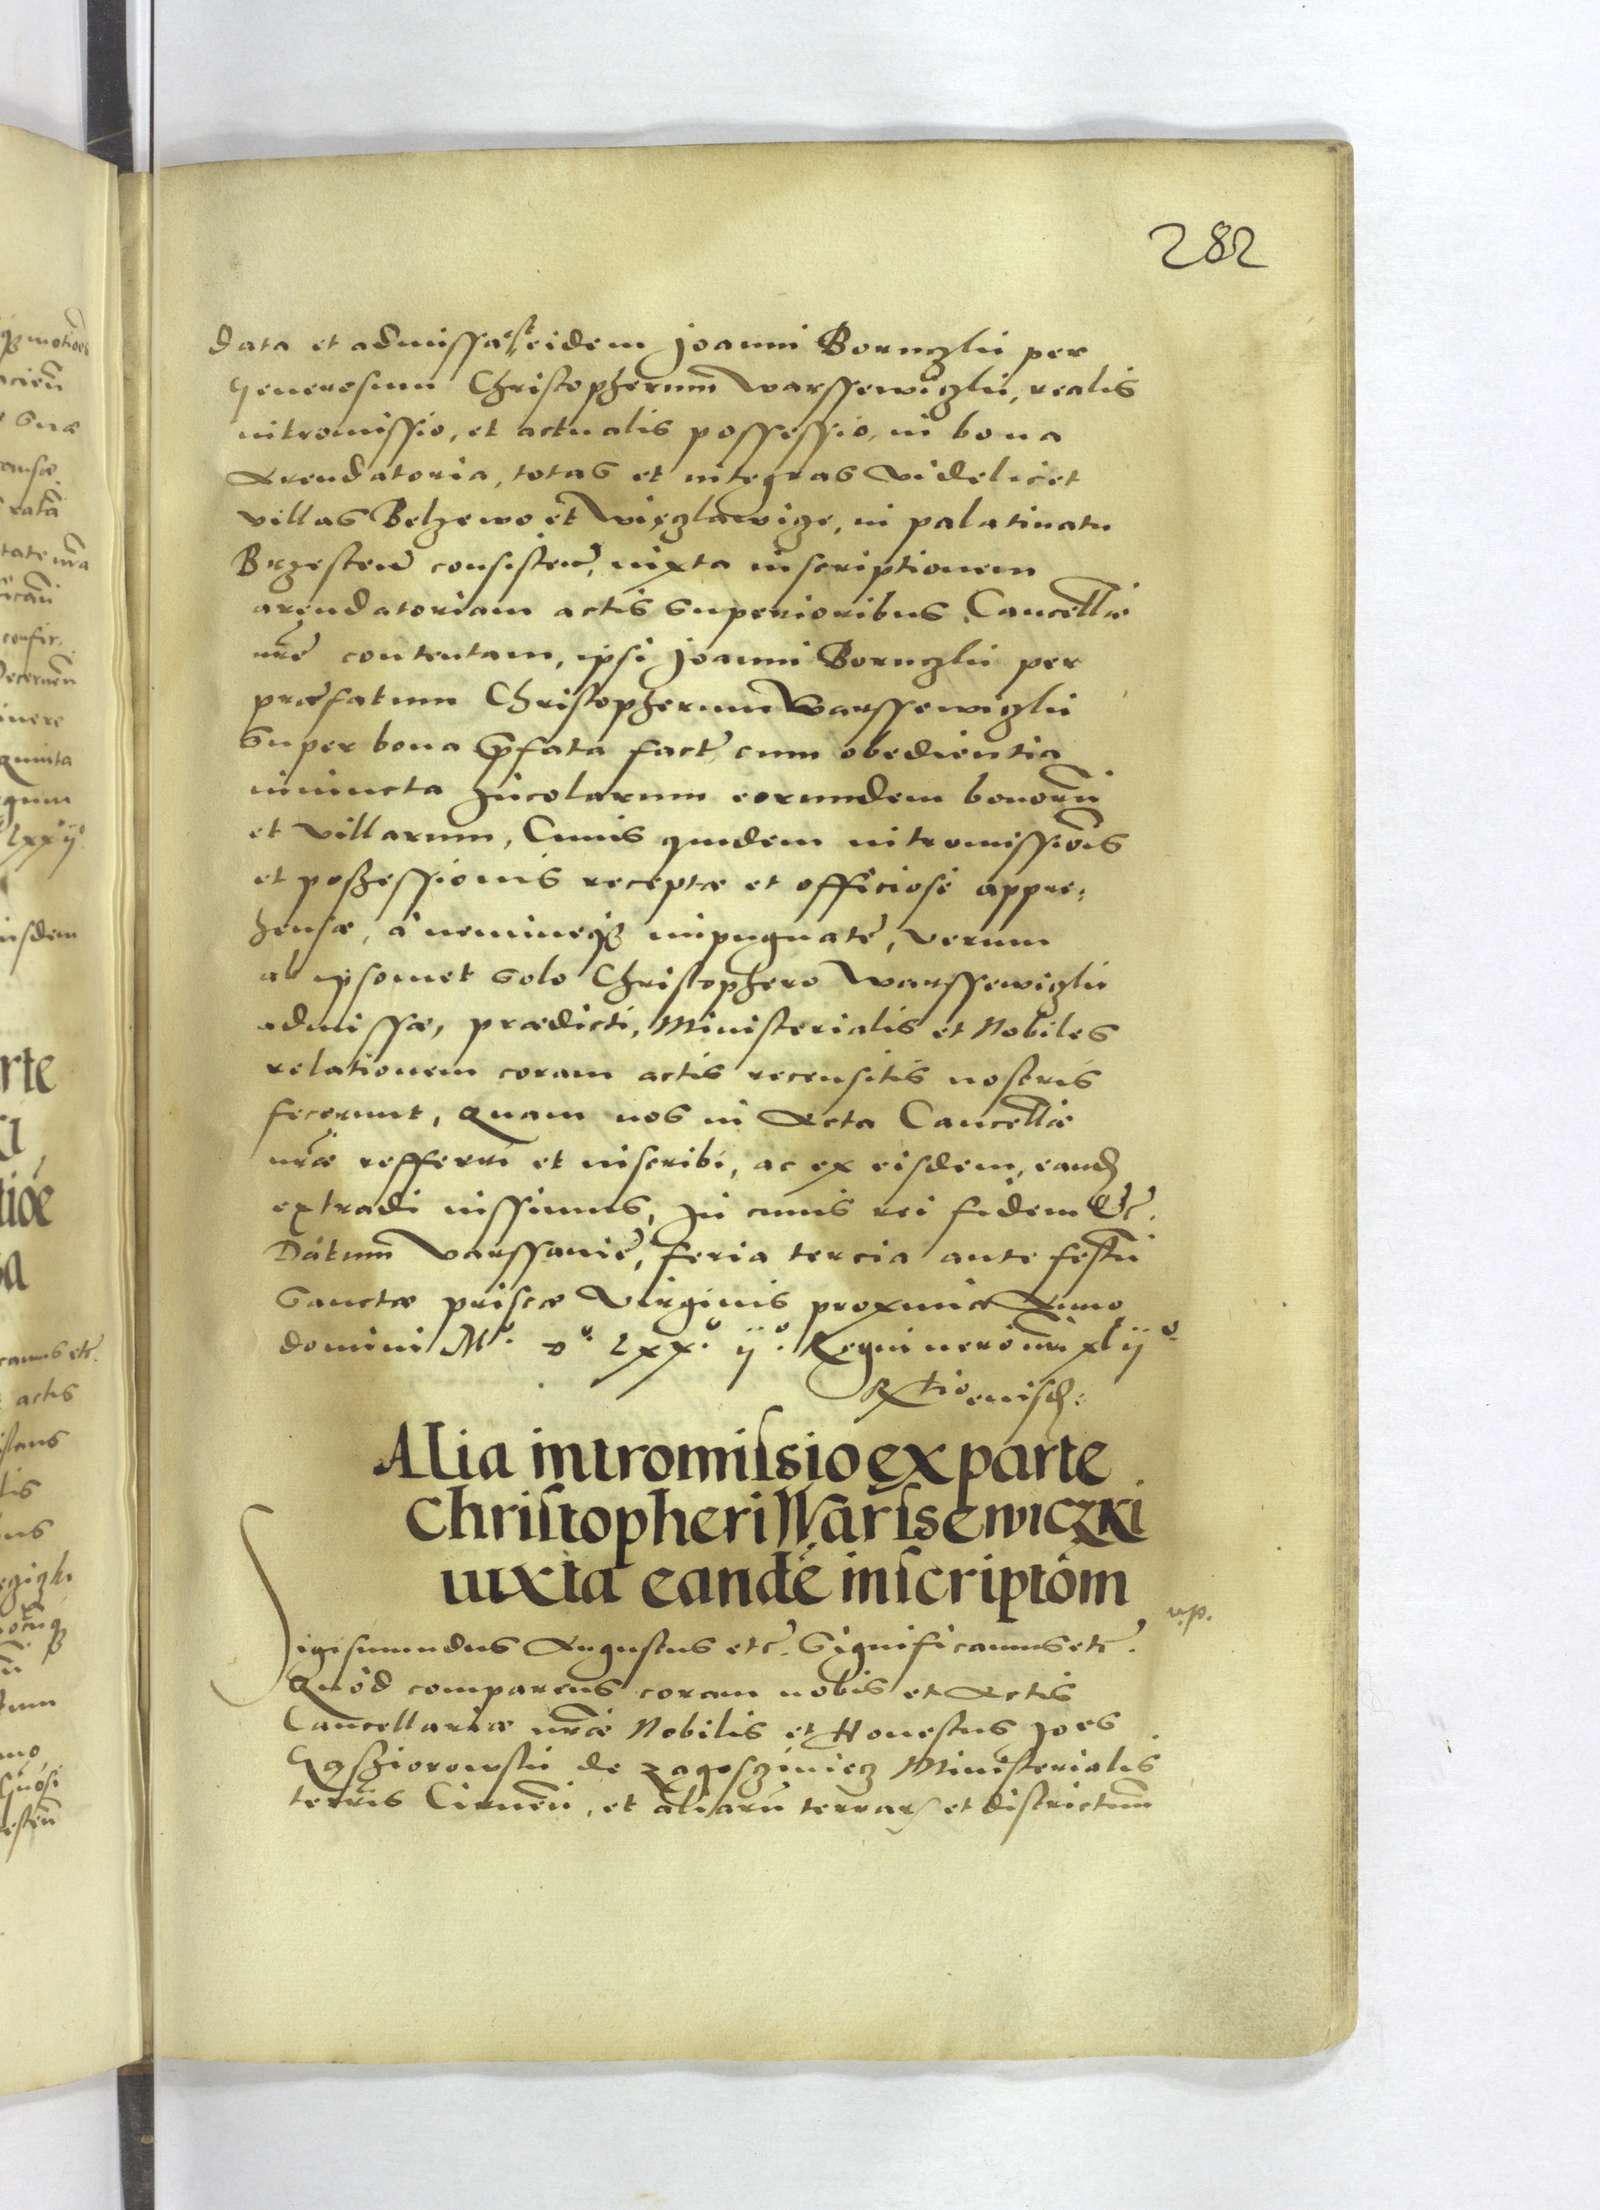 282
data et admissa est eidem Joanni Bornczky per
Generosum Christopherum Warssewiczky, realis
intromissio, et actualis possessio, in bona
Arendatoria, totas et integras videlicet
villas Belzewo et Więzlawice, in palatinatu
Brzesten̄ consisten̄, iuxta inscriptionem
arendatoriam actis superioribus Cancellae
nr̄e contentam, ipsi Joanni Bornczky per
praefatum Christopherum Warssewiczky
super bona p̄fata facte, cum obedientia
iniuncta Incolarum eorumdem bonorū
et villarum, Cuius quidem intromissiōis
et poszessionis receptae et officiose appre,
hensae, à nemineq3 impugnate, verum
ab ipsomet solo Christophero Warssewiczky
admissae, praedicti, Ministerialis et Nobiles
relationem coram actis recensitis nostris
fecerunt, Quam nos in Acta Cancellae
nr̄ae refferri et inscribi, ac ex eisdem, eand
extradi iussimus, In cuius rei fidem Etc.
Datum Varssavie, feria tercia ante festū
Sanctae priscae Virginis proxima Anno
domini Mº. Dº. Lxxº. ijº. Regni vero nr̄i xl ijº.
Rtio eiusd:
Alia intromissio ex parte
Christopheri Warssewiczki
iuxta eandē inscriptōm
Sigismundus Augustus etc. Significamus etc.
Quòd comparens coram nobis et Actis
Cancellariae nr̄ae Nobilis et Honestus Joēs
terris Cirnen̄, et aliarū terrar et districtuum